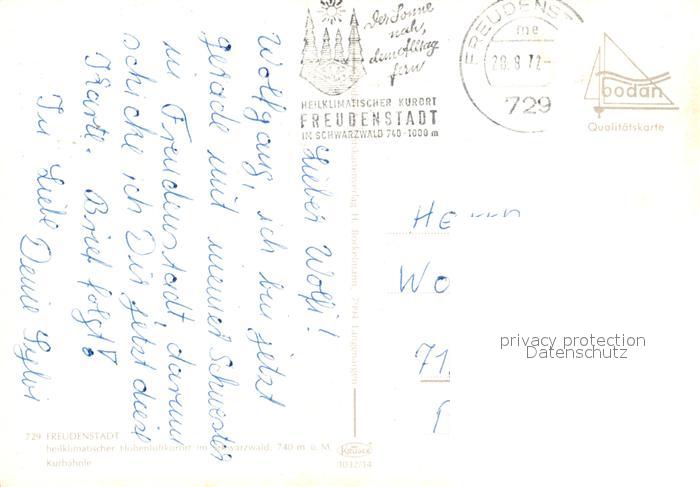 Der Sonne
nah,
dem Alltag
fern
HEILKLIMATISCHER KURORT
FREUDENSTADT
IM SCHWARZWALD 740-1000 m
FREUDENST
me
729
bodan
Qualitätskarte
Lieber Wolfi!
Wolfgang, ich bin jetzt
gerade mit meiner Schwester
in Freudenstadt darum
schicke ich Dir jetzt diese
Karte. Brief folgt!
In Liebe Deine Sylvi
Herrn
Wo
71
privacy protection
Datenschutz
729 FREUDENSTADT
heilklimatischer Höhenluftkurort im Schwarzwald, 740 m ü. M.
Kurbähnle
Krüger
1032/14